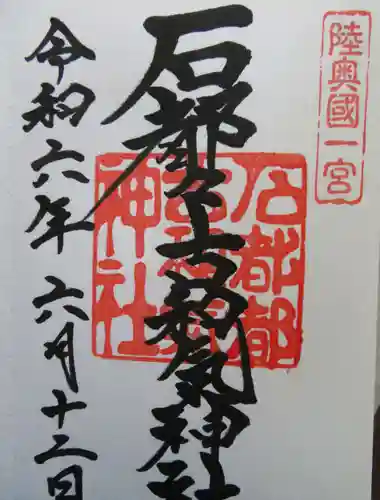 陸奥國一宮
石都々古和気神社
石都都古和氣神社
令和六年六月十二日